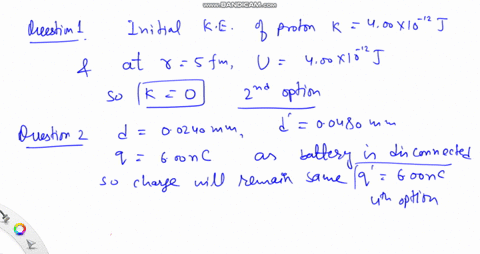 WWW.BANDICAM.COM
Question 1. Initial K.E. of proton K = 4.00 x 10^-12 J
& at r = 5 fm, U = 4.00 x 10^-12 J
so K = 0 2nd option
Question 2 d = 0.0240 mm, d' = 0.0480 mm
q = 600 nC as battery is disconnected
so charge will remain same q' = 600 nC
4th option